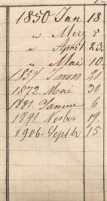 1850 Jan 18
" May 5
" April 23
" Mai 10
1857 Janu 21
1872 Mai 30
1881 Januar 6
1891 Novbr 19
1906 Septbr 15